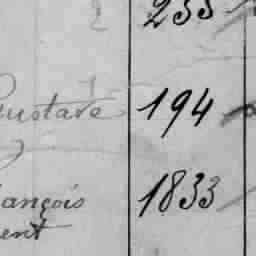 233
ustave 194
ançois 1833
ent